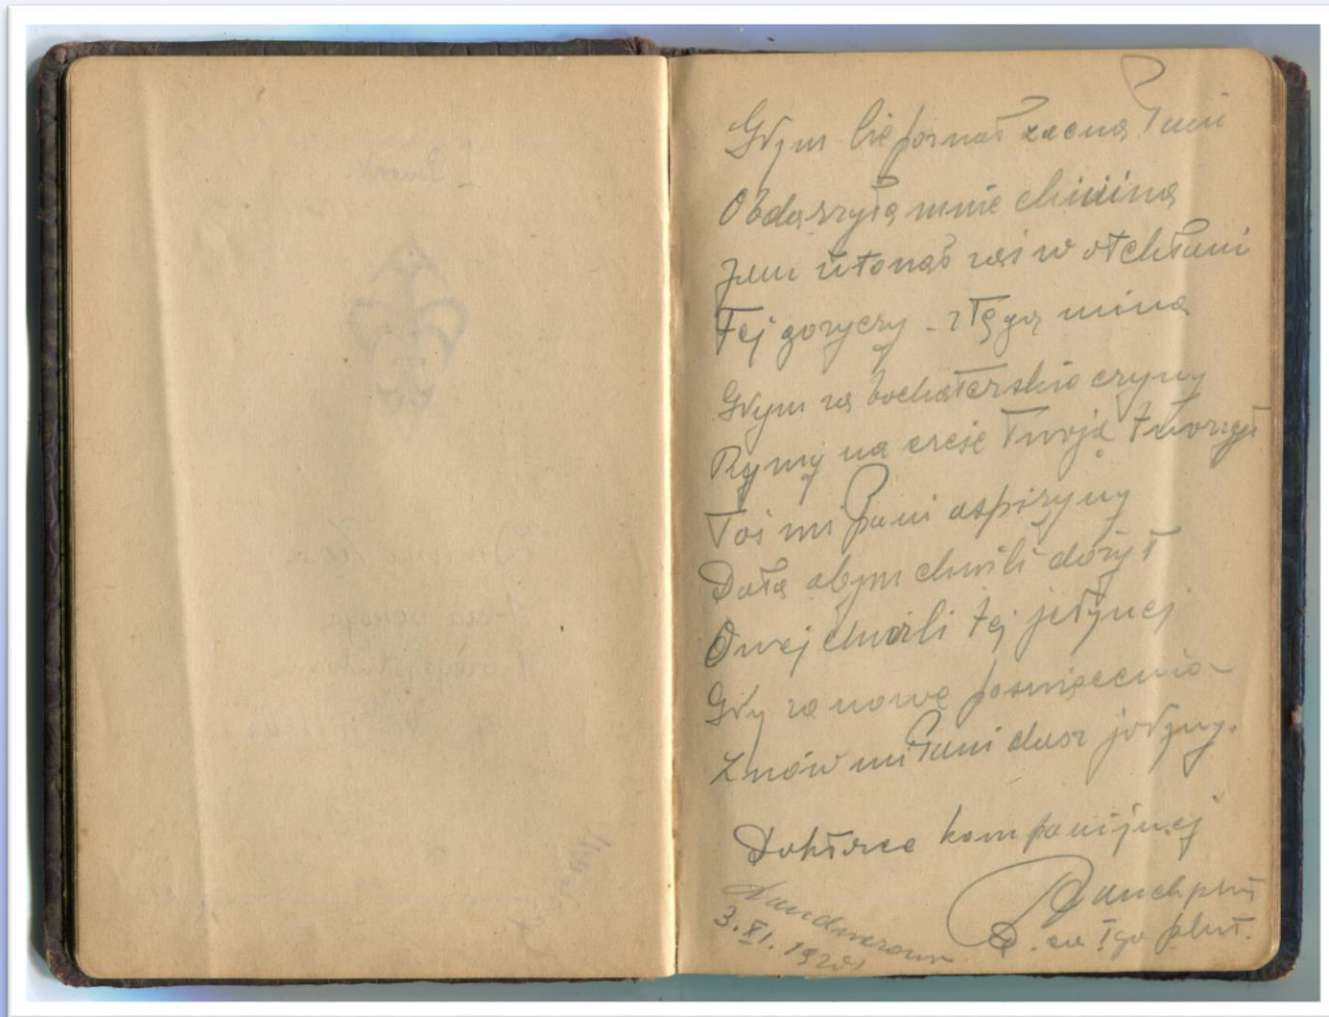 Gdym Cię poznał zacna Pani
Obdarzyła mnie chininą
Jam utonął zaś w otchłani
Tej goryczy - z tęgą miną
Gdym za bochaterskie czyny
Rymy na cześć Twoją tworzył
Toś mi Pani aspiryny
Dała abym chwili dożył
Owej chwili tej jedynej
Gdy za nowe poświęcenia
Znów mi Pani dasz jodyny.
Doktorce kompanijnej
3.XI.1920